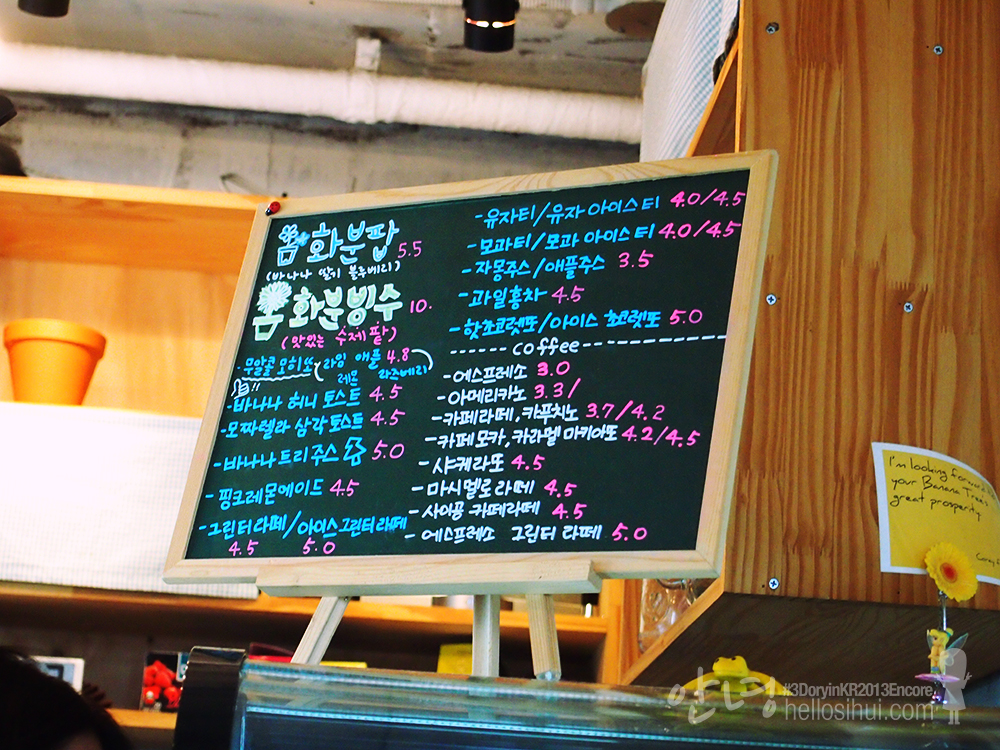 화분팝 5.5
(바나나 딸기 블루베리)
화분빙수 10.
(맛있는 수제 팥)
·무알콜 모히또 (라임 애플 4.8
레몬 라즈베리)
!!
-바나나 허니 토스트 4.5
-모짜렐라 삼각 토스트 4.5
-바나나트리 주스 5.0
-핑크레몬에이드 4.5
-그린티라떼/아이스그린티라떼
4.5 5.0
-유자티/유자 아이스티 4.0/4.5
-모과티/모과 아이스티 4.0/4.5
-자몽주스/애플주스 3.5
-과일홍차 4.5
-핫초코렛또/아이스 쵸코렛또 5.0
------ coffee ----------
-에스프레소 3.0
-아메리카노 3.3/
-카페라떼, 카푸치노 3.7/4.2
-카페모카, 카라멜 마키아또 4.2/4.5
-샤케라또 4.5
-마시멜로라떼 4.5
-사이공 카페라떼 4.5
-에스프레소 그린티 라떼 5.0
I'm looking forward
your Banana Tree's
great prosperity
안녕 #3DoryinKR2013Encore
hellosihui.com